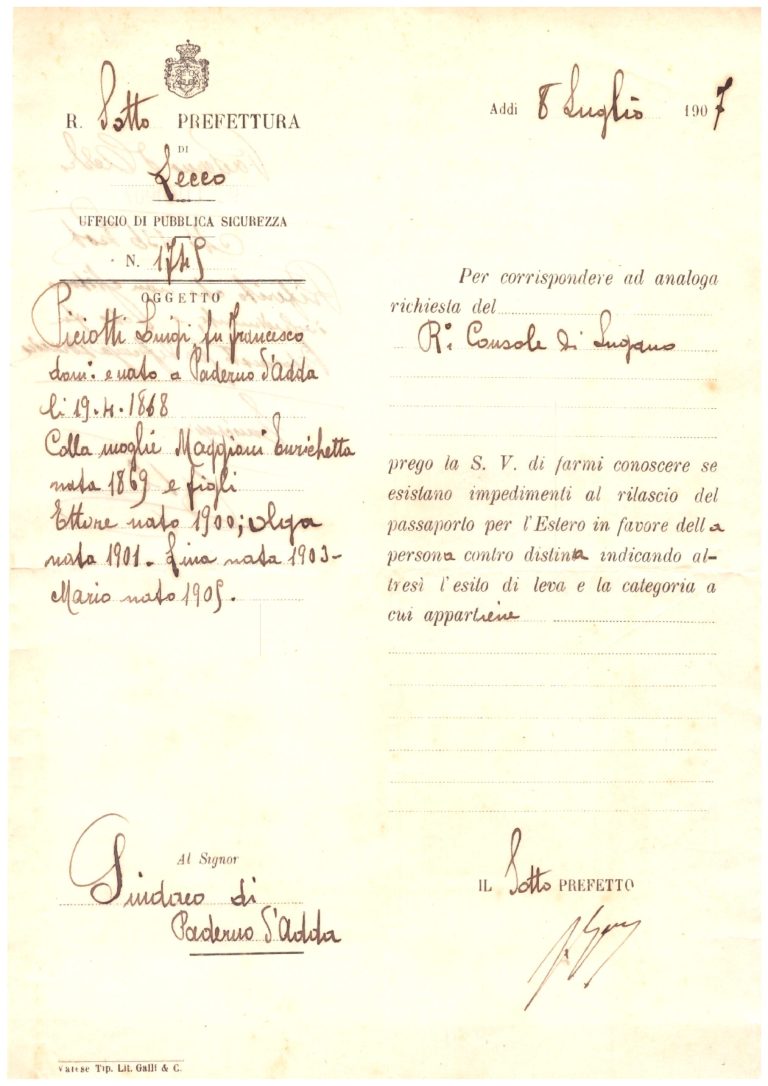 R. Sotto PREFETTURA
DI
Lecco
UFFICIO DI PUBBLICA SICUREZZA
N. 1745
OGGETTO
Piciotti Luigi fu Francesco
dom: e nato a Paderno d'Adda
li 19.4.1868
Colla moglie Maggioni Enrichetta
nata 1869 e figli
Ettore nato 1900; Olga
nata 1901 - Lina nata 1903 -
Mario nato 1905.
Al Signor
Sindaco di
Paderno d'Adda
Varese Tip. Lit. Galli & C.
Addi 8 Luglio 1907
Per corrispondere ad analoga
richiesta del
R: Console di Lugano
prego la S. V. di farmi conoscere se
esistano impedimenti al rilascio del
passaporto per l'Estero in favore della
persona contro distinta indicando al-
tresì l'esito di leva e la categoria a
cui appartiene
IL Sotto PREFETTO